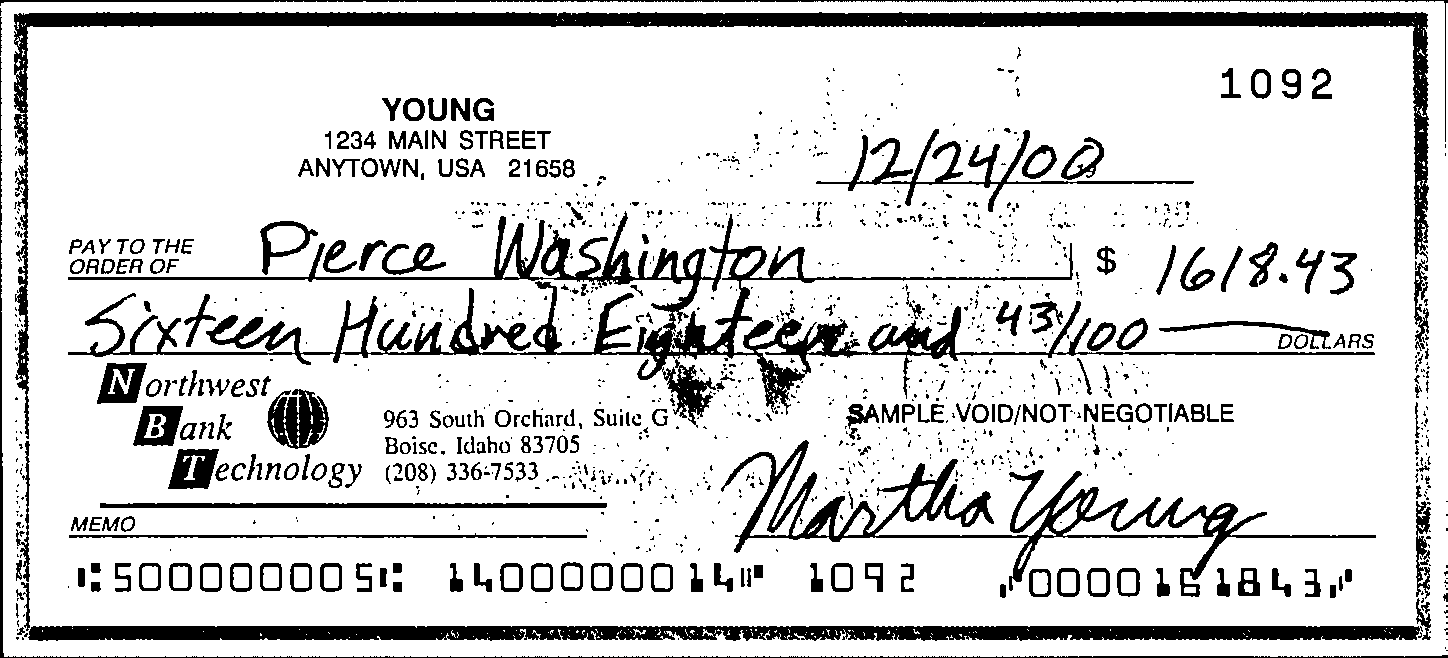 1092
YOUNG
1234 MAIN STREET
ANYTOWN, USA 21658
12/24/00
PAY TO THE
ORDER OF Pierce Washington $ 1618.43
Sixteen Hundred Eighteen and 43/100 DOLLARS
Northwest
Bank
Technology
963 South Orchard, Suite G
Boise, Idaho 83705
(208) 336-7533
SAMPLE VOID/NOT NEGOTIABLE
MEMO
Martha Young
⑆500000005⑆ 1400000014⑈ 1092 ⑇0000161843⑇